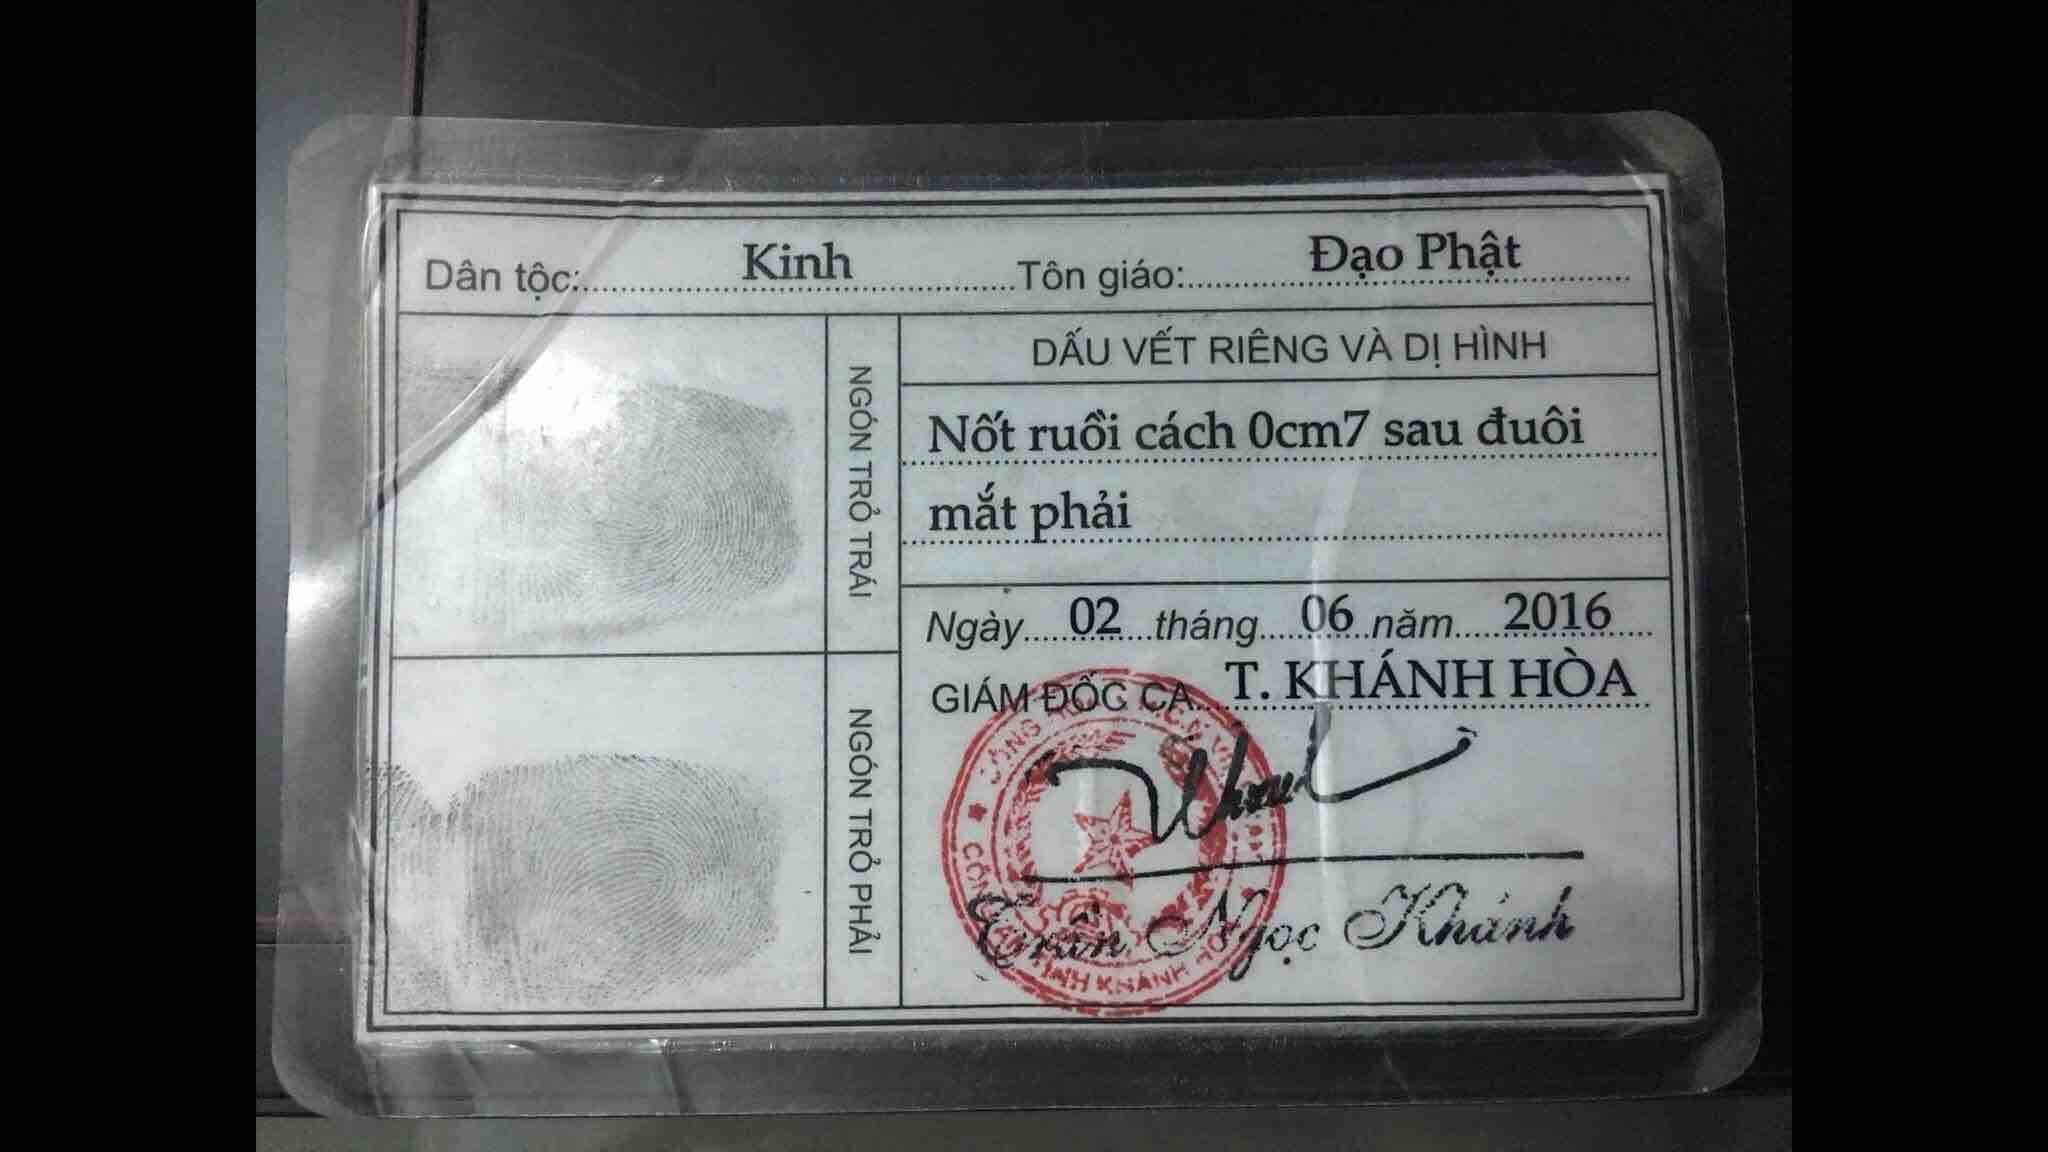 Dân tộc: Kinh Tôn giáo: Đạo Phật
NGÓN TRỎ TRÁI
DẤU VẾT RIÊNG VÀ DỊ HÌNH
Nốt ruồi cách 0cm7 sau đuôi
mắt phải
Ngày 02 tháng 06 năm 2016
GIÁM ĐỐC CA T. KHÁNH HÒA
NGÓN TRỎ PHẢI
TỈNH KHÁNH
Trần Ngọc Khánh